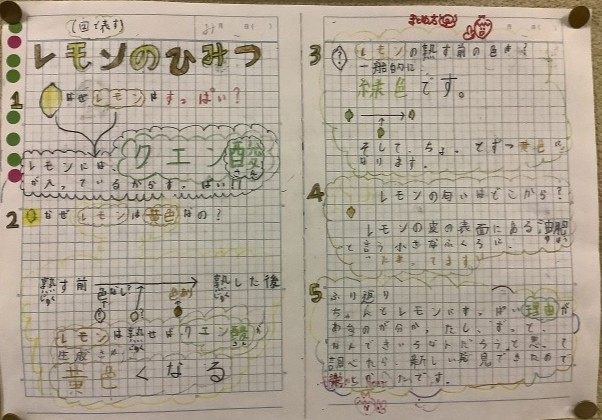 (図で表す)
レモンのひみつ
1 なぜレモンはすっぱい?
レモンには、クエン酸
が入っているからすっぱい!!
2 なぜレモンは黄色なの?
熟す前 色なし? 色あり 熟した後
レモンは熟せばクエン酸が
生産され
黄色くなる
まとめ方
3 レモンの熟す前の色は?
一般的に
緑色です。
そして、ちょっとずつ黄色に
なります。
4 レモンの匂いはどこから?
レモンの皮の表面にある油胞
と言う小さなふくろに、
5 ふり返り
ちゃんとレモンにすっぱい理由が
あるのが分かったし、
なんできいろなんだろうって思って
調べたら、新しい発見できたので
楽しかったです。